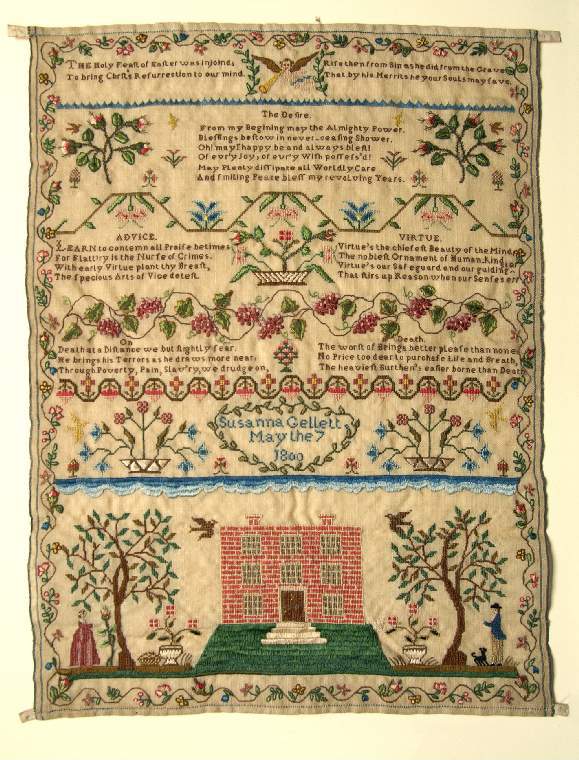 THE Holy Feast of Easter was injoind,
To bring Chrsts Resurrection to our mind.
Rise then from Sin as he did from the Grave
That by his Merrits he your Souls may save.
The Desire.
From my Begining may the Almighty Power.
Blessings bestow in never-ceasing Shower.
Oh! may I happy be and always blest!
Of ev'ry Joy, of ev'ry Wish possess'd!
May Plenty dissipate all Worldly Care
And smiling Peace bless my revolving Years.
ADVICE.
LEARN to contemn all Praise betimes
For Flatt'ry is the Nurse of Crimes.
With early Virtue plant thy Breast,
The specious Arts of Vice detest.
VIRTUE.
Virtue's the chiefest Beauty of the Mind
The noblest Ornament of Human-Kind
Virtue's our Safeguard and our guiding
That stirs up Reason when our Senses err
On
Death at a Distance we but slightly fear.
He brings his Terrors as he draws more near,
Through Poverty, Pain, Slav'ry, we drudge on,
Death.
The worst of Beings better please than none
No Price too dear to purchase Life and Breath
The heaviest Burthen's easier borne than Death
Susanna Gellett
May the 7
1800